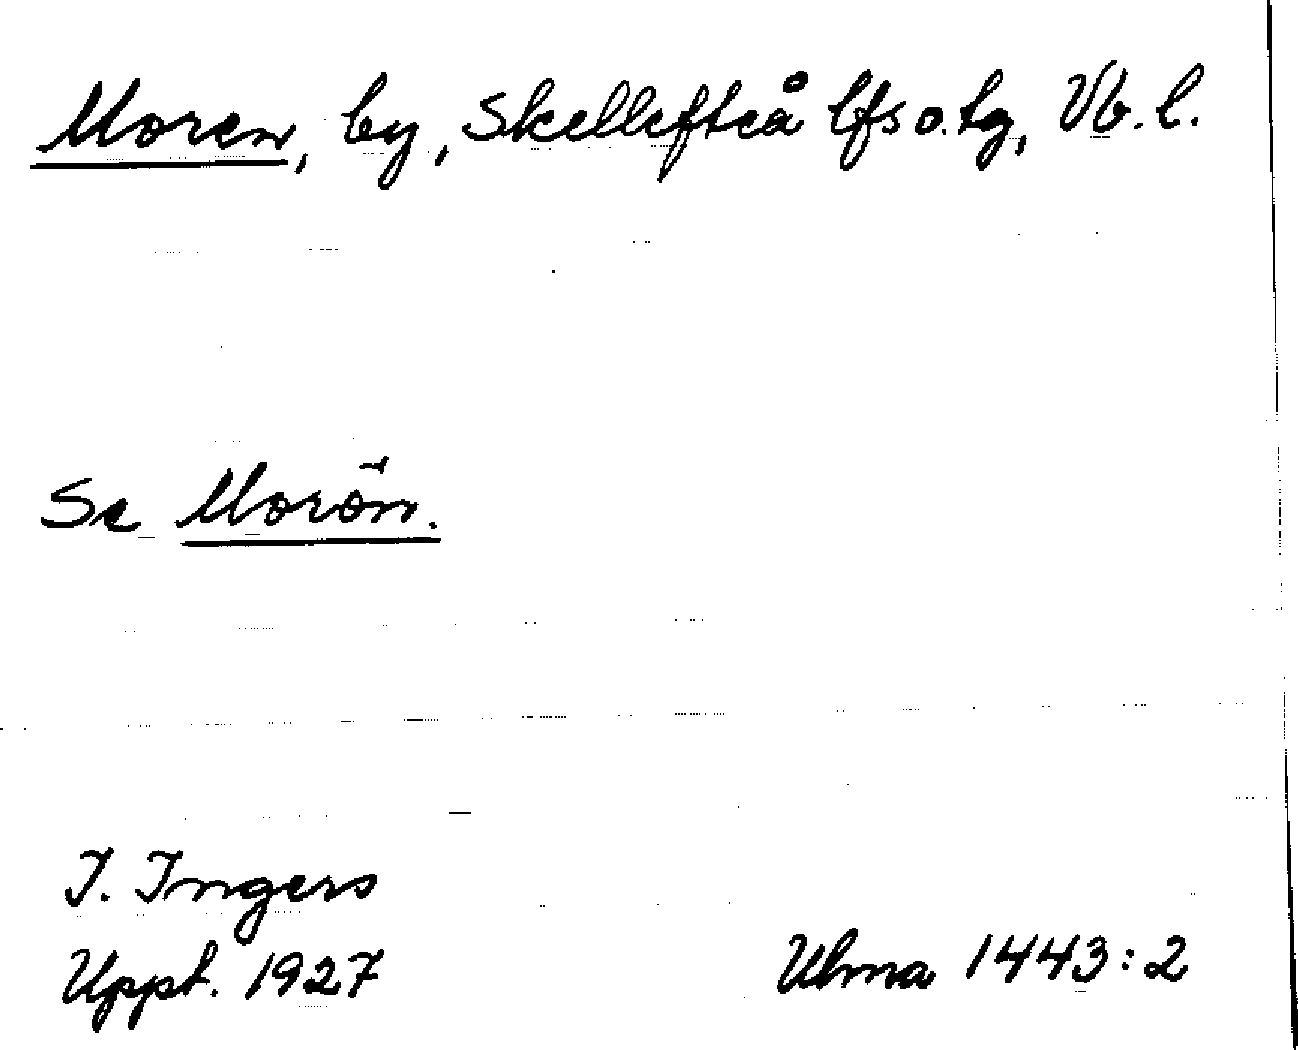 Moren, by, Skellefteå lfs o. tg, Vb. l.
Se Morön.
I. Ingers
Uppt. 1927
Ulma 1443:2